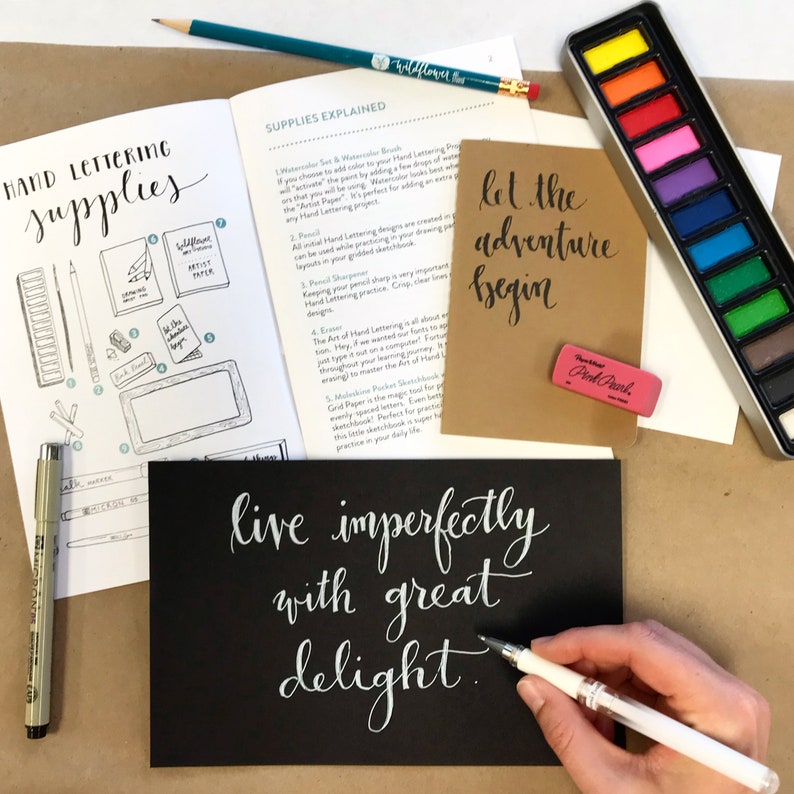 wildflower
2
HAND LETTERING
supplies
6
7
DRAWING
wildflower
ART STUDIO
ARTIST
PAPER
let the
adventure
begin
3
5
1
2
Pink Pearl
4
8
9
MARKER
MICRON 05
SUPPLIES EXPLAINED
1.Watercolor Set & Watercolor Brush
If you choose to add color to your Hand Lettering
will "activate" the paint by adding a few drops of water
ors that you will be using. Watercolor looks best when
the "Artist Paper". It's perfect for adding an extra
any Hand Lettering project.
2. Pencil
All initial Hand Lettering designs are created in
can be used while practicing in your drawing
layouts in your gridded sketchbook.
3. Pencil Sharpener
Keeping your pencil sharp is very important
Hand Lettering practice. Crisp, clear lines
designs.
4. Eraser
The Art of Hand Lettering is all about
tion. Hey, if we wanted our fonts to
just type it out on a computer!
throughout your learning journey. It
erasing) to master the Art of Hand
5. Moleskine Pocket Sketchbook
Grid Paper is the magic tool for
evenly-spaced letters. Even better
sketchbook! Perfect for
this little sketchbook is super
practice in your daily life.
let the
adventure
begin
Paper Mate
Pink Pearl
live imperfectly
with great
delight.
MICRON